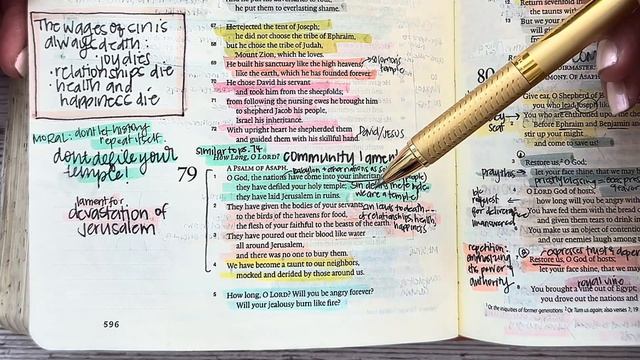 The wages of sin is
always death:
joy dies
relationships die
health and
happiness die
MORAL: don't let history
repeat itself.
don't defile your
temple!
lament for
devastation of
Jerusalem
596
he put them to everlasting shame.
67 He rejected the tent of Joseph;
he did not choose the tribe of Ephraim,
68 but he chose the tribe of Judah,
Mount Zion, which he loves.
69 He built his sanctuary like the high heavens,
like the earth, which he has founded forever.
solomon's
temple
70 He chose David his servant
and took him from the sheepfolds;
71 from following the nursing ewes he brought him
to shepherd Jacob his people,
Israel his inheritance.
72 With upright heart he shepherded them
and guided them with his skillful hand.
David/JESUS
similar to ps. 74
How Long, O LORD?
community lament
79
A PSALM OF ASAPH.
1 O God, the nations have come into your inheritance;
they have defiled your holy temple;
they have laid Jerusalem in ruins.
we are a temple!
2 They have given the bodies of your servants
to the birds of the heavens for food,
the flesh of your faithful to the beasts of the earth.
sin leads to death...
of relationships, health,
happiness
3 They have poured out their blood like water
all around Jerusalem,
and there was no one to bury them.
4 We have become a taunt to our neighbors,
mocked and derided by those around us.
5 How long, O LORD? Will you be angry forever?
Will your jealousy burn like fire?
12 Return sevenfold
the taunts
13 But we your
80
Give ear, O Shepherd of
you who lead Joseph
You who are enthroned upon the
2 Before Ephraim and Benjamin
stir up your might
and come to save us!
3 Restore us, O God;
let your face shine, that we may
4 O LORD God of hosts,
how long will you be angry
5 You have fed them with the bread
and given them tears to
6 You make us an object of
and our enemies laugh among
request
for deliverance
unanswered
expresses trust & depen
7 Restore us, O God of hosts;
let your face shine, that we may
repetition:
emphasizing
its power &
authority
royal vine
8 You brought a vine out of Egypt;
you drove out the nations
Or the iniquities of former generations
Or Turn us again; also verses 7, 19